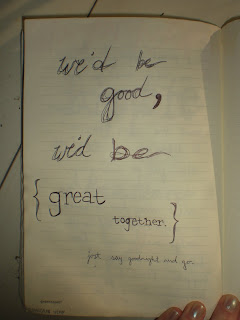 we'd be
good,
we'd be
{ great
together. }
just say goodnight and go.